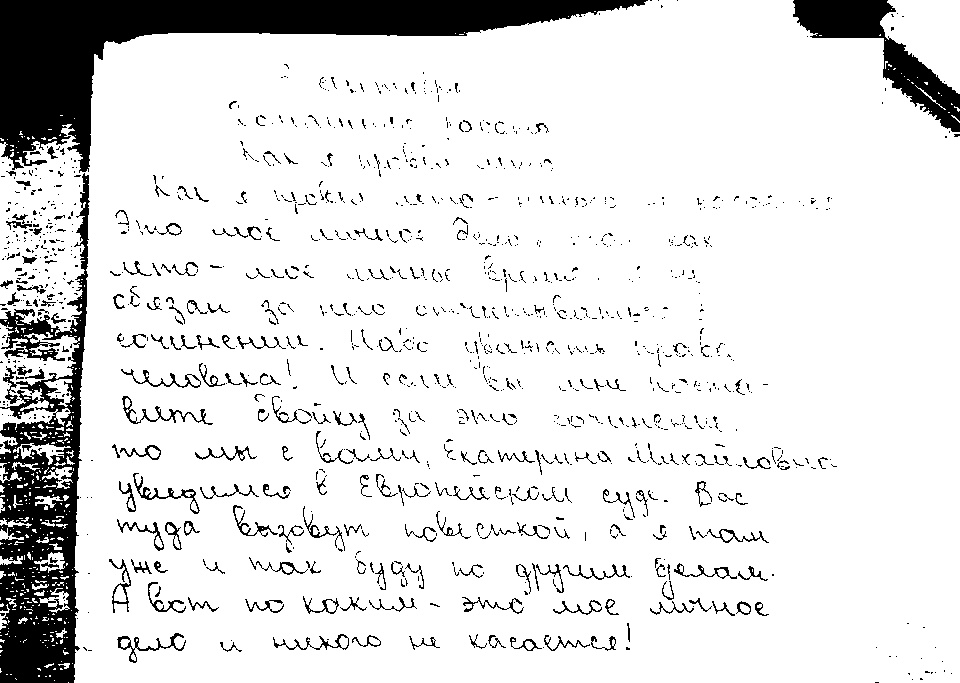 2 сентября
Домашняя работа
Как я провёл лето
Как я провёл лето - никого не касается
Это моё личное дело, так как
лето - моё личное время. Я не
обязан за него отчитываться в
сочинении. Надо уважать права
человека! И если вы мне поста-
вите двойку за это сочинение,
то мы с вами, Екатерина Михайловна
увидимся в Европейском суде. Вас
туда вызовут повесткой, а я там
уже и так буду по другим делам.
А вот по каким - это моё личное
дело и никого не касается!